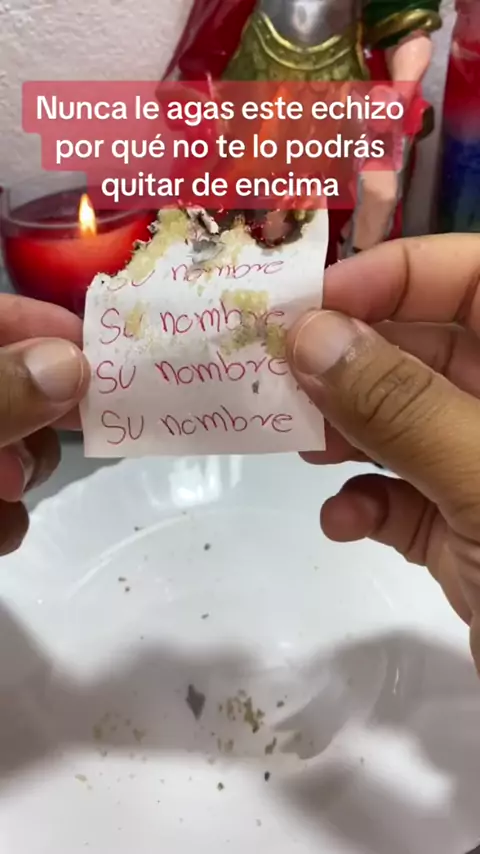 Nunca le agas este echizo
por qué no te lo podrás
quitar de encima
Su nombre
Su nombre
Su nombre
Su nombre